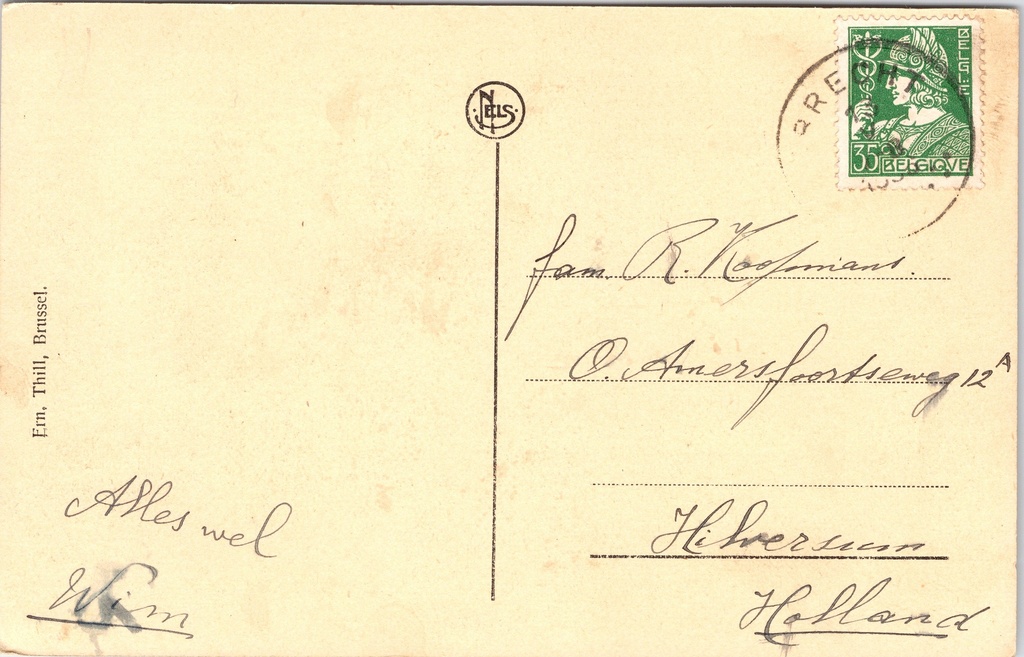 NELS
BRECHT
BELGIE
35c
BELGIQUE
Ern. Thill, Brussel.
Alles wel
Wim
fam R. Koopmans.
O. Amersfoortseweg 12A
Hilversum
Holland